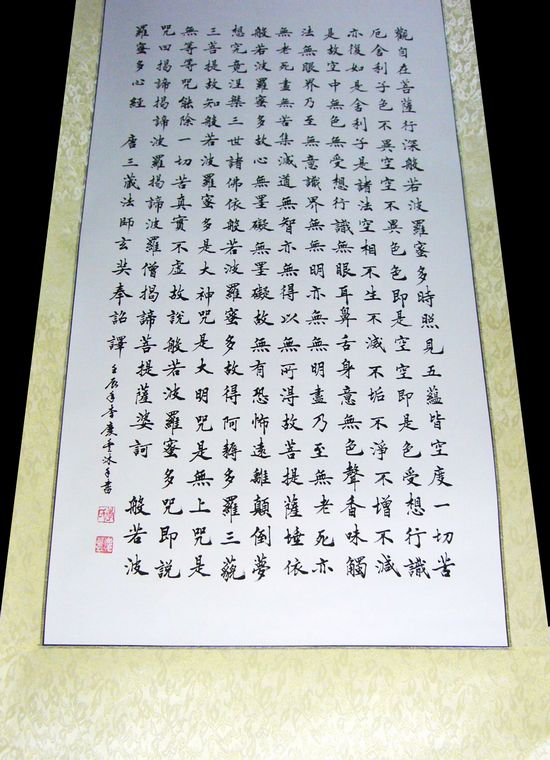 觀自在菩薩行深般若波羅蜜多時照見五蘊皆空度一切苦
厄舍利子色不異空空不異色色即是空空即是色受想行識
亦復如是舍利子是諸法空相不生不滅不垢不淨不增不減
是故空中無色無受想行識無眼耳鼻舌身意無色聲香味觸
法無眼界乃至無意識界無無明亦無無明盡乃至無老死亦
無老死盡無苦集滅道無智亦無得以無所得故菩提薩埵依
般若波羅蜜多故心無罣礙無罣礙故無有恐怖遠離顛倒夢
想究竟涅槃三世諸佛依般若波羅蜜多故得阿耨多羅三藐
三菩提故知般若波羅蜜多是大神咒是大明咒是無上咒是
無等等咒能除一切苦真實不虛故說般若波羅蜜多咒即說
咒曰揭諦揭諦波羅揭諦波羅僧揭諦菩提薩婆訶 般若波
羅蜜多心經 唐三藏法師玄奘奉詔譯
壬辰年春慶雲沐手書